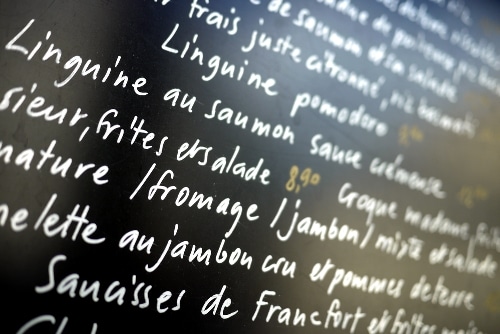 de saumon et sa salade
frais juste citronné, riz basmati
Linguine pomodoro
Linguine au saumon sauce crémeuse
sieur, frites et salade 8,90 Croque madame, frites
nature / fromage / jambon / mixte et salade
melette au jambon cru et pommes de terre
Saucisses de Francfort et frites